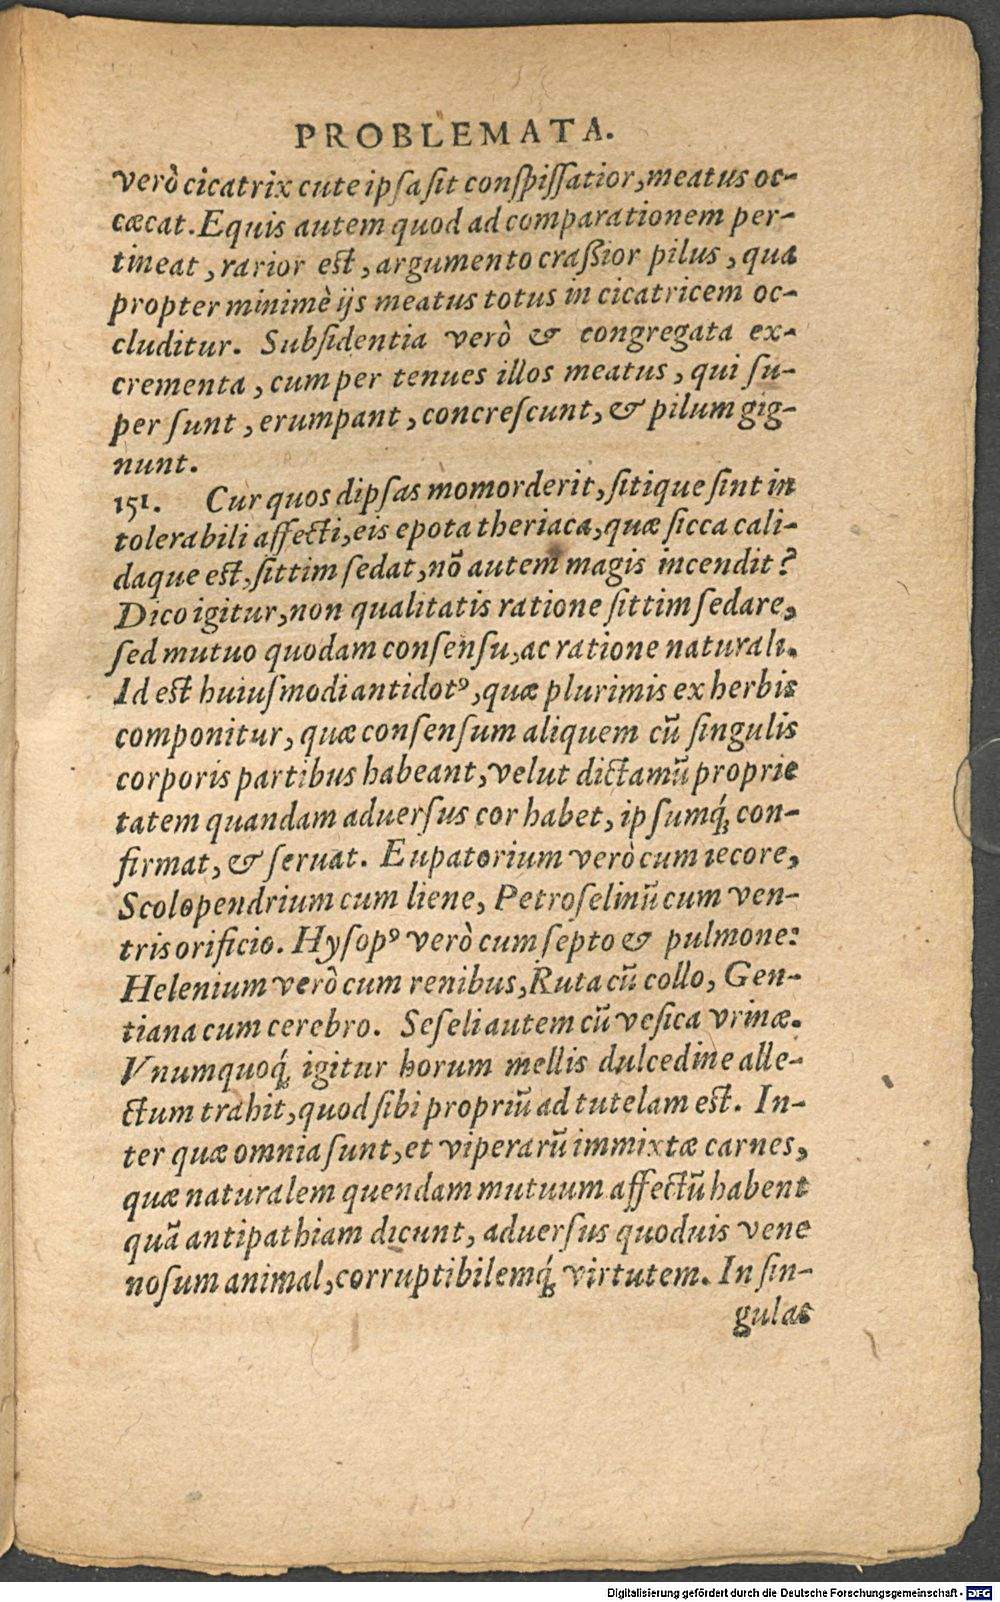 PROBLEMATA.
verò cicatrix cute ipsa sit conspissatior, meatus oc-
cæcat. Equis autem quod ad comparationem per-
tineat, rarior est, argumento craßior pilus, qua
propter minimè ijs meatus totus in cicatricem oc-
cluditur. Subsidentia verò & congregata ex-
crementa, cum per tenues illos meatus, qui su-
per sunt, erumpant, concrescunt, & pilum gig-
nunt.
151. Cur quos dipsas momorderit, sitique sint in
tolerabili affecti, eis epota theriaca, quæ sicca cali-
daque est, sittim sedat, nō autem magis incendit?
Dico igitur, non qualitatis ratione sittim sedare,
sed mutuo quodam consensu, ac ratione naturali.
Id est huiusmodi antidotꝰ, quæ plurimis ex herbis
componitur, quæ consensum aliquem cū singulis
corporis partibus habeant, velut dictamū proprie
tatem quandam aduersus cor habet, ipsumq́; con-
firmat, & seruat. Eupatorium verò cum iecore,
Scolopendrium cum liene, Petroselinū cum ven-
tris orificio. Hysopꝰ verò cum septo & pulmone:
Helenium verò cum renibus, Ruta cū collo, Gen-
tiana cum cerebro. Seseli autem cū vesica vrinæ.
Vnumquoq́; igitur horum mellis dulcedine alle-
ctum trahit, quod sibi propriū ad tutelam est. In-
ter quæ omnia sunt, et viperarū immixtæ carnes,
quæ naturalem quendam mutuum affectū habent
quā antipathiam dicunt, aduersus quoduis vene
nosum animal, corruptibilemq́; virtutem. In sin-
gulas
Digitalisierung gefördert durch die Deutsche Forschungsgemeinschaft - DFG